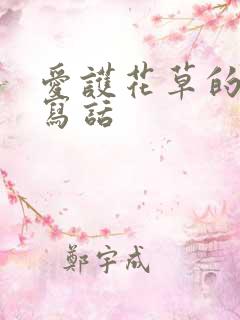 愛護花草的
寫話
鄭宇成